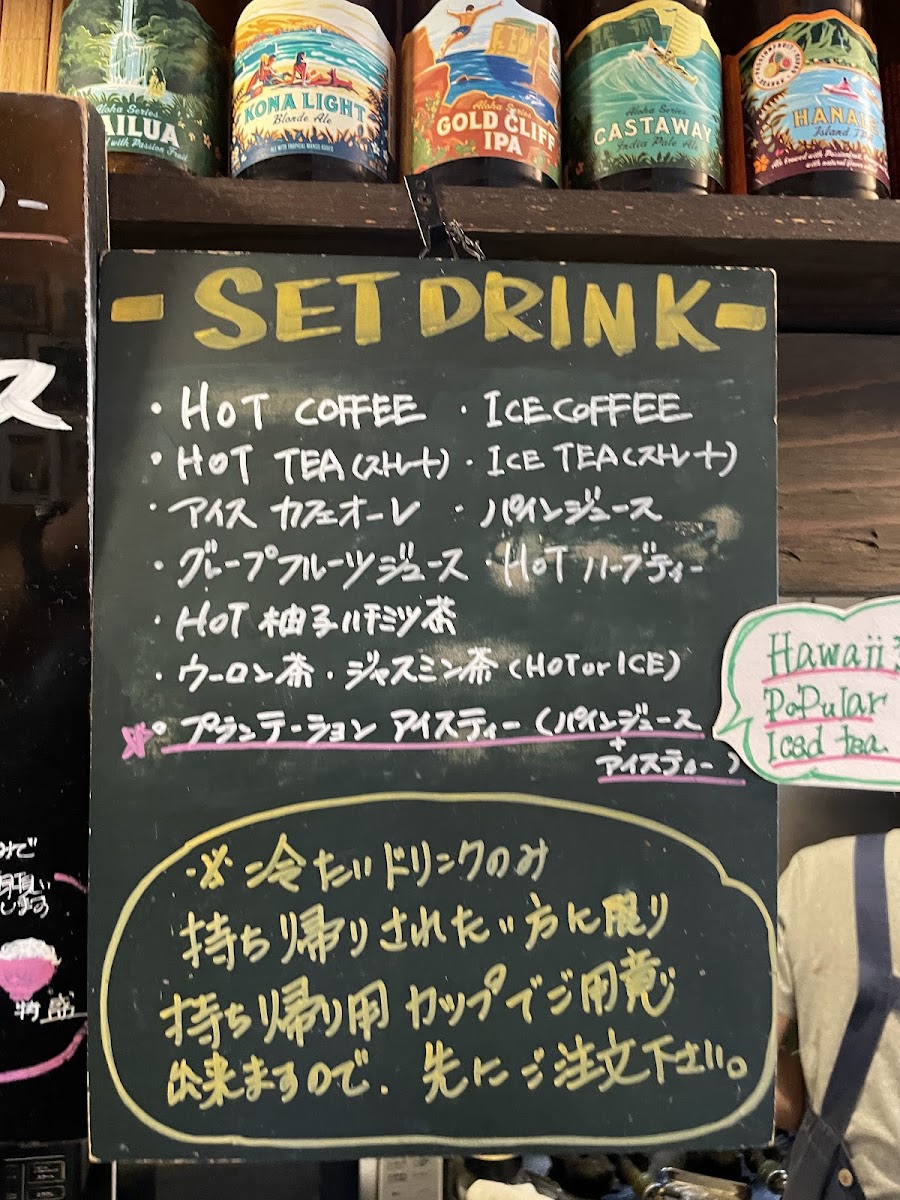 AILUA
with Passion Fruit
KONA LIGHT
Blonde Ale
Aloha Series
GOLD CLIFF
IPA
Aloha Series
CASTAWAY
India Pale Ale
HANAL
Island
- SET DRINK -
・HOT COFFEE ・ICE COFFEE
・HOT TEA(ストレート)・ICE TEA(ストレート)
・アイス カフェオーレ ・パインジュース
・グレープフルーツジュース ・HOT ハーブティー
・HOT 柚子ハチミツ茶
・ウーロン茶・ジャスミン茶(HOT or ICE)
※・プランテーション アイスティー(パインジュース
+
アイスティー)
Hawaii
Popular
Iced tea
※冷たいドリンクのみ
持ち帰りされたい方に限り
持ち帰り用カップでご用意
出来ますので、先にご注文下さい。
ス